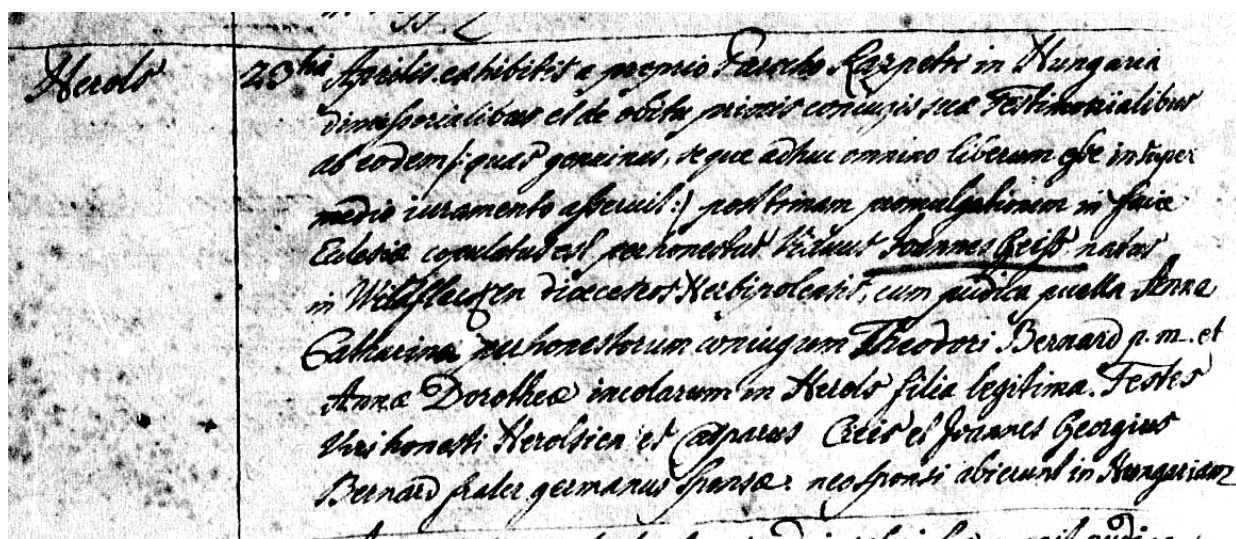 Herols
23tia Aprilis exhibitis a proprio Parocho Karpetri in Hungaria
dimissorialibus et de obitu prioris coniugis suæ Testimonialibus
ab eodem /: quas genuinas, seque adhuc omnino liberum esse insuper
medio iuramento asseruit :/ post trinam promulgationem in facie
Ecclesiæ copulatus est perhonestus Viduus Joannes Geiss natus
in Wildflecken diœceseos Herbipolensis, cum pudica puella Anna
Catharina perhonestorum coniugum Theodori Bernard p. m. et
Annæ Dorotheæ incolarum in Herols filia legitima. Testes
Viri honesti Herolsien et Casparus et Joannes Georgius
Bernard frater germanus sponsæ. neosponsi abierunt in Hungariam